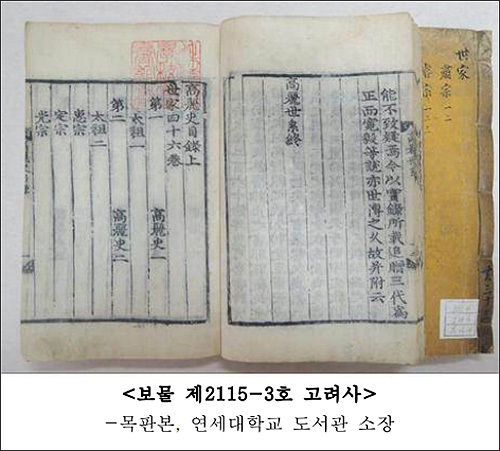 世家
肅宗一二
能不致疑焉今以實錄所載追贈三代爲
正而寬毅等說亦世傳之久故并附云
高麗世系終
高麗史目錄上
世家四十六卷
第一 高麗史一
太祖一
第二 高麗史二
太祖二
惠宗
定宗
光宗
<보물 제2115-3호 고려사>
-목판본, 연세대학교 도서관 소장